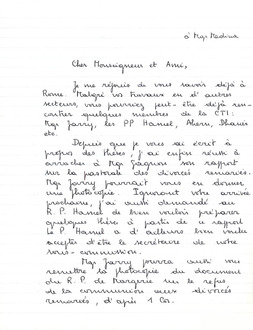 à Mgr Medina
Cher Monseigneur et Ami,
Je me réjouis de vous savoir déjà à
Rome. Malgré vos travaux en d'autres
secteurs, vous pourriez peut-être déjà ren-
contrer quelques membres de la CTI :
Mgr Jarry, les PP Hamel, Ahern, Dhanis
etc.
Depuis que je vous ai écrit à
propos des thèses, j'ai enfin réussi à
arracher à Mgr Gagnon son rapport
sur la pastorale des divorcés remariés.
Mgr Jarry pourrait vous en donner
une photocopie. Ignorant votre arrivée
prochaine, j'ai aussi demandé au
R. P. Hamel de bien vouloir préparer
quelques thèses à partir de ce rapport.
Le P. Hamel a d'ailleurs bien voulu
accepter d'être le secrétaire de votre
sous-commission.
Mgr Jarry pourra aussi vous
remettre la photocopie du document
du R. P. de Margerie sur le refus
de la communion aux divorcés
remariés, d'après 1 Cor.